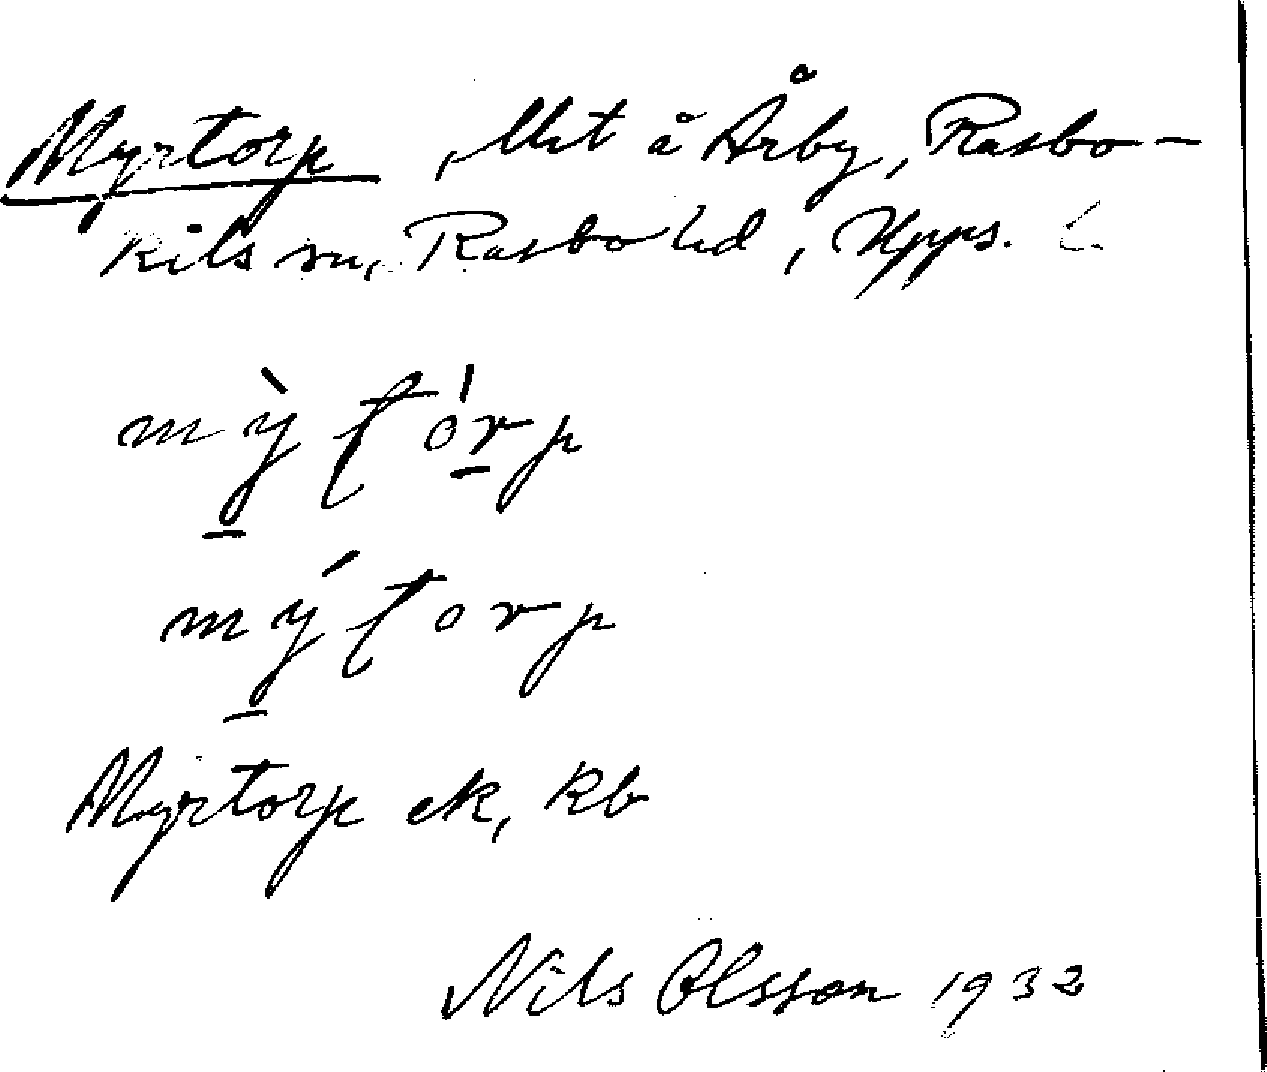 Myrtorp, Utet å Årby, Rasbo-
Kils sn, Rasbo hd, Upps. L
Myrtorp ek, kb
Nils Olsson 1932